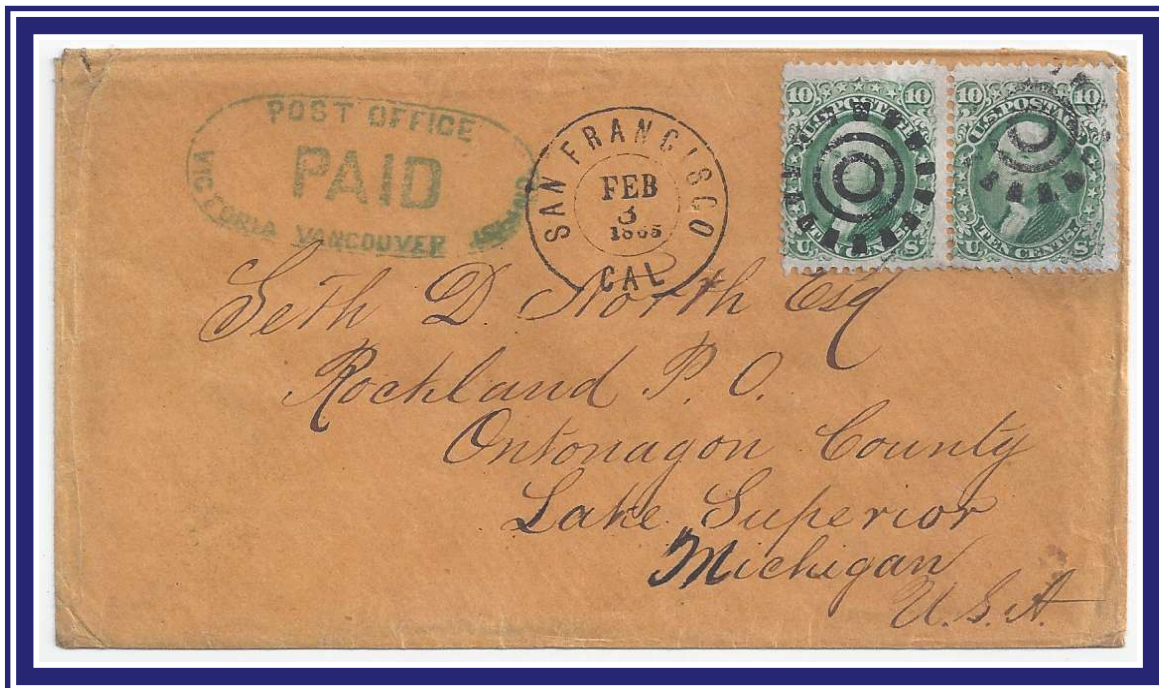 POST OFFICE
PAID
VICTORIA VANCOUVER ISLAND
SAN FRANCISCO
FEB
3
1865
CAL
10 10
U.S. POSTAGE
TEN CENTS
U. S.
10 10
U.S. POSTAGE
TEN CENTS
U. S.
Seth D. North Esq
Rockland P. O.
Ontonagon County
Lake Superior
Michigan
U. S. A.